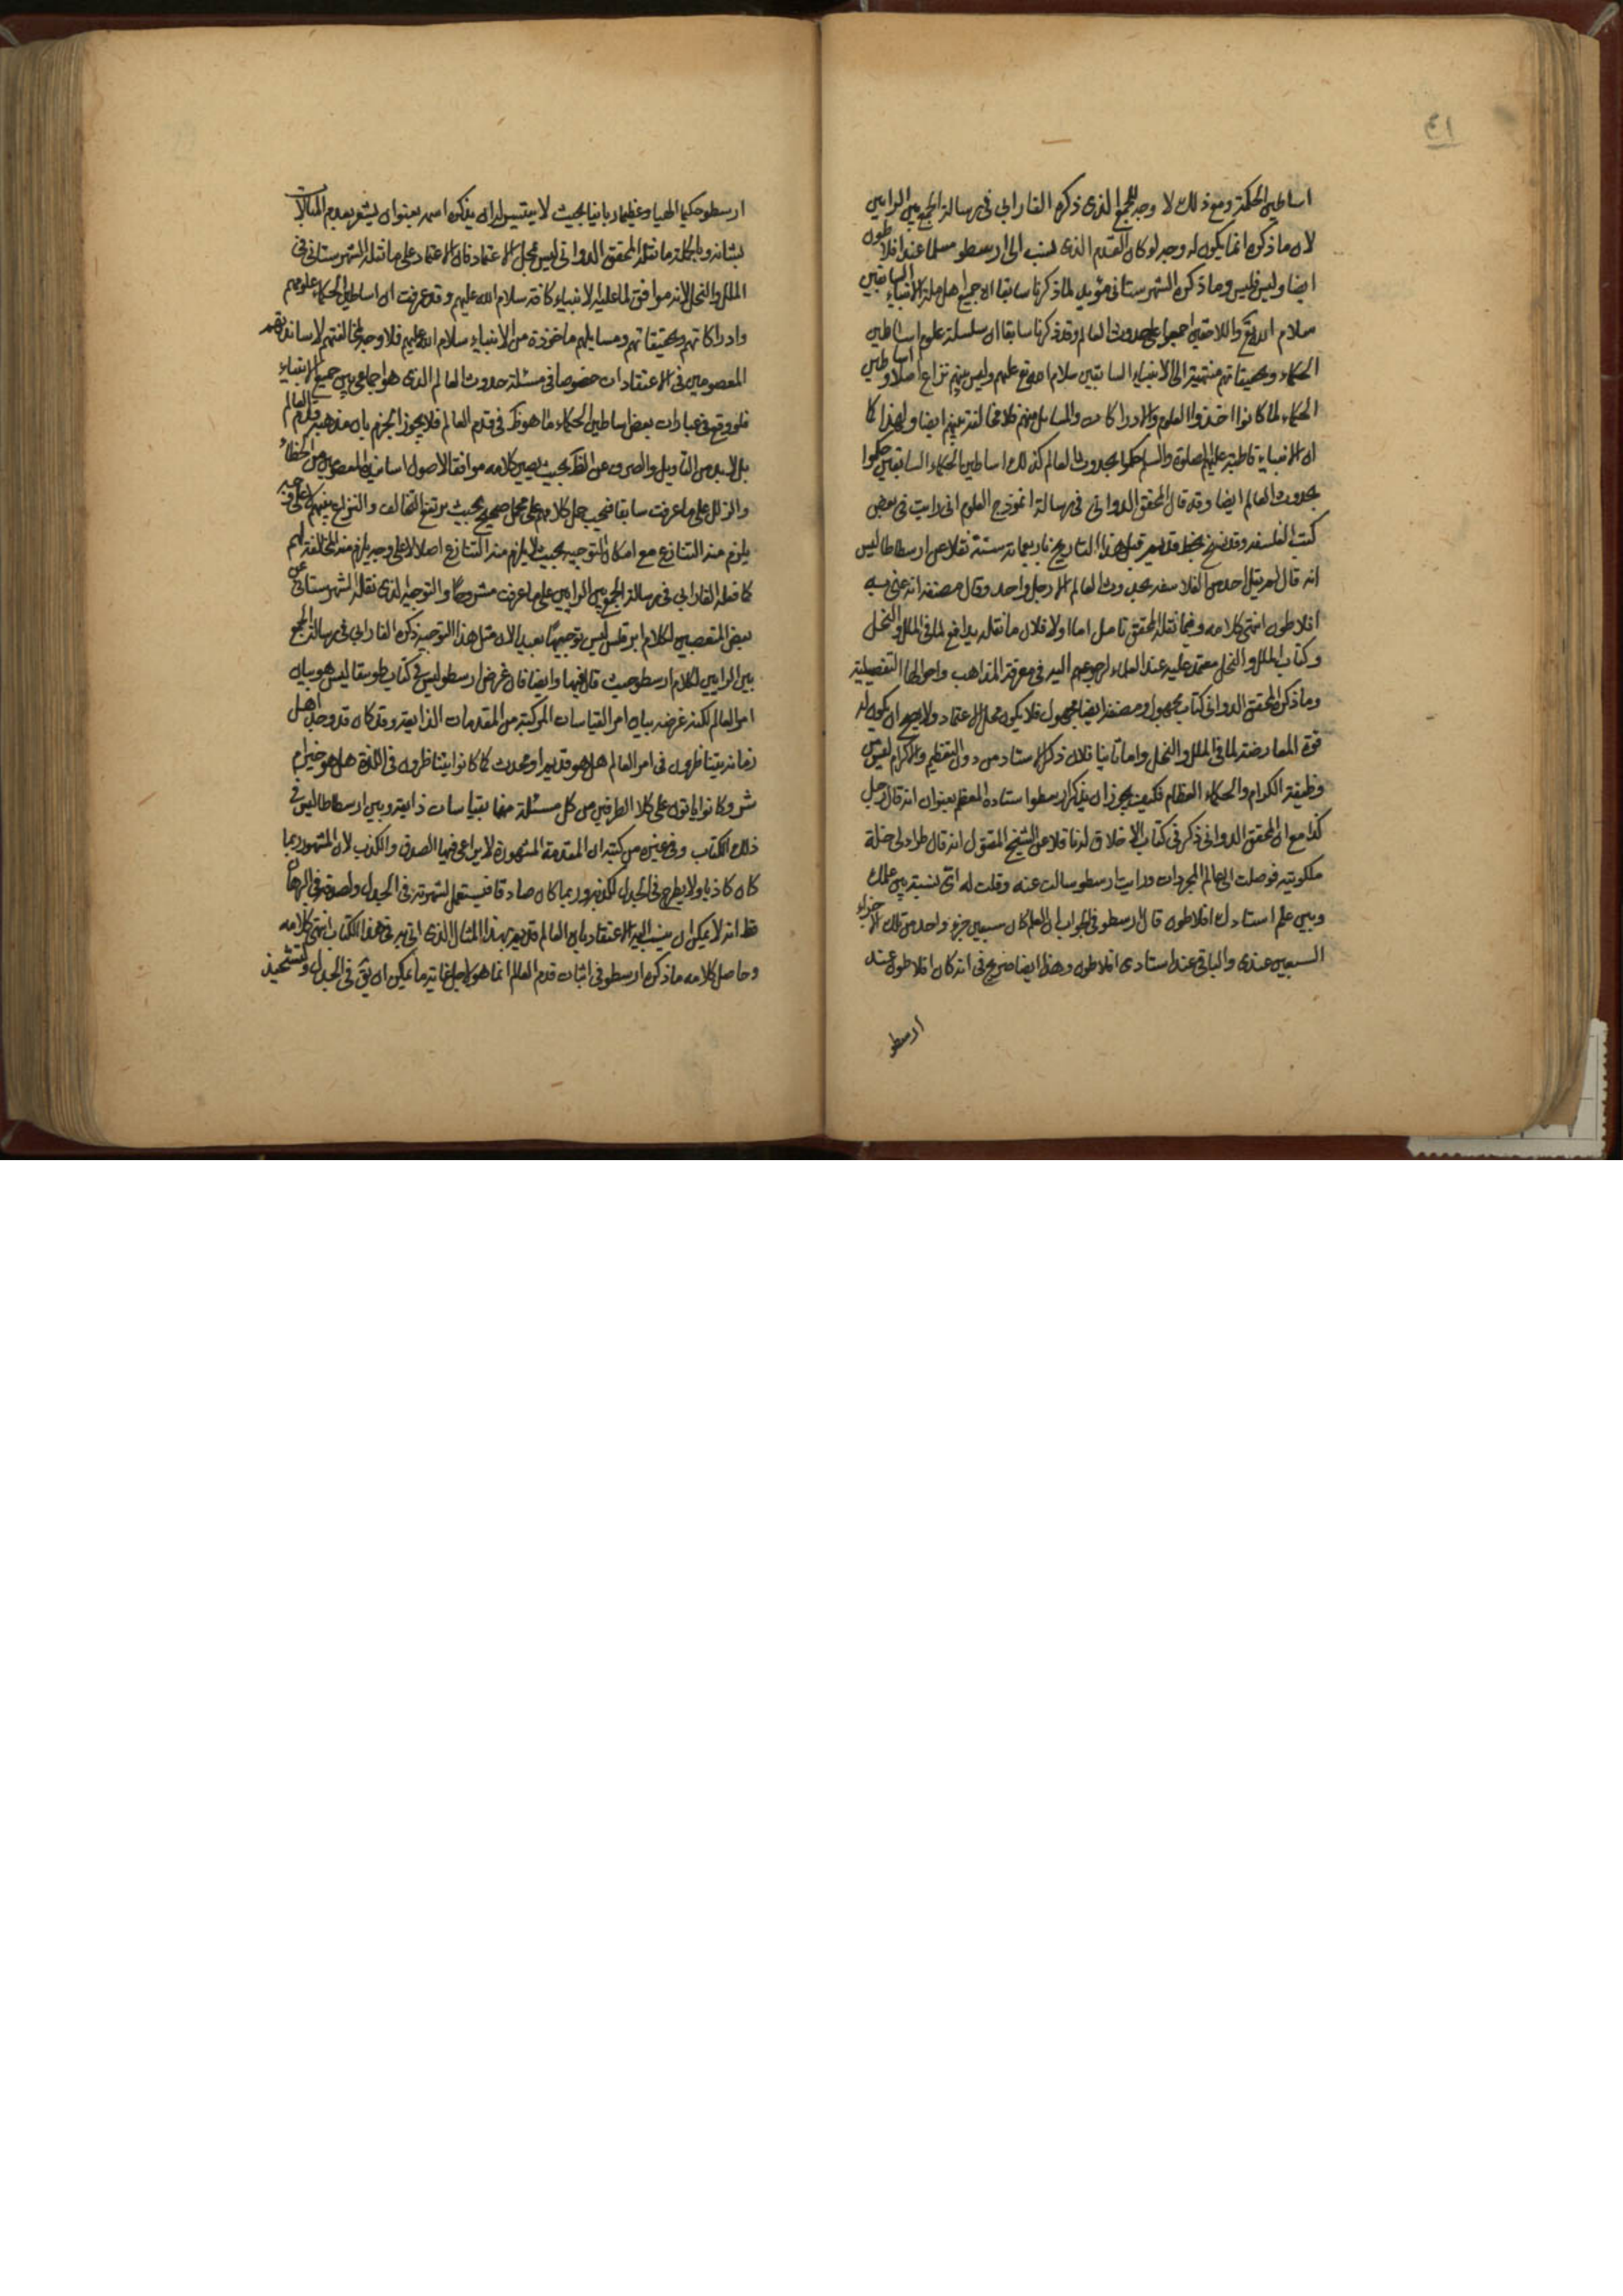 ٤١
اساطين الحكمة ومع ذلك لا وجه للجمع الذى ذكره الفارابى فى رسالة الجمع بين الرايين
لان ما ذكره انما يكون له وجه لو كان القدم الذى نسب الى ارسطو مسلما عند افلاطون
ايضا وليس فليس وما ذكره الشهرستانى مؤيد لما ذكرنا سابقا ان جميع اهل ملة الانبياء السابقين
سلام الله تع واللاحقين اجمعوا على حدوث العالم وقد ذكرنا سابقا ان سلسلة علوم اساطين
الحكماء وتحقيقاتهم منتهية الى الانبياء السابقين سلام الله تع عليهم وليس بينهم نزاع اصلا واساطين
الحكماء لما كانوا اخذوا العلوم والادراكات والمسايل منهم فلا مخالفة بينهم ايضا ولهذا كما
ان الانبياء قاطبة عليهم الصلوة والسلم حكموا بحدوث العالم كذلك اساطين الحكماء السابقين حكموا
بحدوث العالم ايضا وقد قال المحقق الدوانى فى رسالة انموذج العلوم انى رايت فى بعض
كتب الفلسفه وقد نسخ بخط قديم قبل هذا التاريخ باربعمائة سنة نقلا عن ارسطاطاليس
انه قال لم يقل احد من الفلاسفه بحدوث العالم الا رجل واحد وقال مصنفه انه عنى به
افلاطون انتهى كلامه وفيما نقله المحقق تامل اما اولا فلان ما نقله يدافع لما فى الملل والنحل
وكتاب الملل والنحل معتمد عليه عند العلماء لرجوعهم اليه فى معرفة المذاهب واحوالها التفصيلية
وما ذكره المحقق الدوانى كتاب مجهول ومصنفه ايضا مجهول فلا يكون محلا للاعتماد ولا يصح ان يكون له
قوة المعارضة لما فى الملل والنحل واما ثانيا فلان ذكر الاستاد من دون التعظيم والاكرام ليس من
وظيفة الكرام والحكماء العظام فكيف يجوز ان يذكر ارسطو استاده المعظم بعنوان انه قال رجل
كذا مع ان المحقق الدوانى ذكر فى كتاب الاخلاق له ناقلا عن الشيخ المقتول انه قال طراء لى خلسة
ملكوتيه فوصلت الى عالم المجردات ورايت ارسطو سالت عنه وقلت له اى نسبة بين علمك
وبين علم استادك افلاطون قال ارسطو فى الجواب ان العلم كان سبعين جزء واحد من تلك الاجزاء
السبعين عندى والباقى عند استادى افلاطون وهذا ايضا صريح فى انه كان افلاطون عند
ارسطو
ارسطو حكيما الهيا وعظيما ربانيا بحيث لا يتيسر له ان يذكره اسمه بعنوان يشعر بعدم المبالات
بشانه وبالجملة ما نقله المحقق الدوانى ليس محل الاعتماد فان الاعتماد على ما نقله الشهرستانى فى
الملل والنحل لانه موافق لما عليه الانبياء كافة سلام الله عليهم وقد عرفت ان اساطين الحكماء علومهم
وادراكاتهم وتحقيقاتهم ومسايلهم ماخوذة من الانبياء سلام الله عليهم فلا وجه لمخالفتهم لاساتذتهم
المعصومين فى الاعتقادات خصوصا فى مسئلة حدوث العالم الذى هو اجماعى بين جميع الانبياء
فلو وقع فى عبارات بعض اساطين الحكماء ما هو ظ فى قدم العالم فلا يجوز الجزم بان مذهبه قدم العالم
بل لا بد من التاويل والصرف عن الظ بحيث يصير كلامه موافقا لاصول اساتذه المعصومين من الخطاء
والزلل على ما عرفت سابقا فيجب حمل كلامهم على محمل صحيح بحيث يرتفع التخالف والتنازع بينهم لا على وجه
يلزم منه التنازع مع امكان التوجيه بحيث لا يلزم منه التنازع اصلا لا على وجه يلزم منه المخالفة لهم
كما فعله الفارابى فى رسالة الجمع بين الرايين على ما عرفت مشروحا والتوجيه الذى نقله الشهرستانى عن
بعض المتعصبين لكلام ابرقلس ليس توجيها بعيدا لان مثل هذا التوجيه ذكره الفارابى فى رسالة الجمع
بين الرايين لكلام ارسطو حيث قال فيها وايضا فان غرض ارسطو ليس فى كتاب طوبيقا ليس هو بيان
امر العالم لكنه غرضه بيان امر القياسات المركبة من المقدمات الذايعة وقد كان قد وجد اهل
زمانه يتناظرون فى امر العالم هل هو قديم او محدث كما كانوا يتناظرون فى اللذة هل هو خير ام
شر وكانوا ياتون على كلا الطرفين من كل مسئلة منها بقياسات ذايعة وبين ارسطاطاليس فى
ذلك الكتاب وفى غيره من كتبه ان المقدمة المشهورة لا يراعى فيها الصدق والكذب لان المشهور ربما
كان كاذبا ولا يطرح فى الجدل لكذبه وربما كان صادقا فيستعمل لشهرته فى الجدل ولصدقه فى البرهان
فظ انه لا يمكن ان ينسب اليه الاعتقاد بان العالم قديم بهذا المثال الذى اتى به فى هذا الكتاب انتهى كلامه
وحاصل كلامه ما ذكره ارسطو فى اثبات قدم العالم انما هو لاجل غاية ما يمكن ان يق فى الجدل وتشحيذ